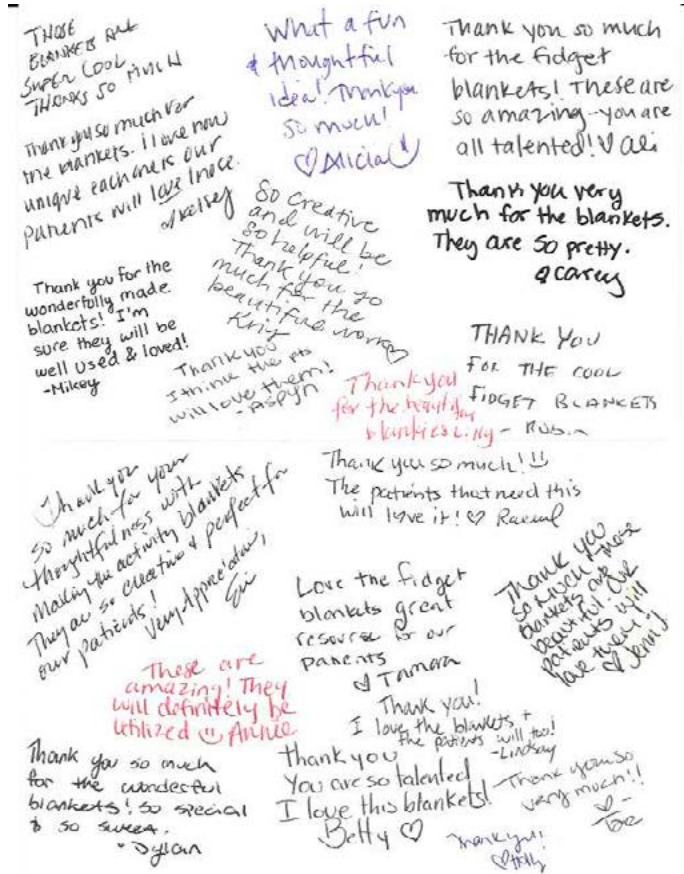 THOSE
BLANKETS ARE
SUPER COOL
THANKS SO MUCH
What a fun
& thoughtful
idea! Thank you
so much!
♡ Alicia
Thank you so much
for the fidget
blankets! These are
so amazing - you are
all talented! ♡ Ali
Thank you so much for
the blankets. I love how
unique each one is our
patients will love these.
Kelsey
So creative
and will be
so helpful!
Thank you so
much for the
beautiful work
Thank you very
much for the blankets.
They are so pretty.
Carey
Thank you for the
wonderfully made
blankets! I'm
sure they will be
well used & loved!
-Mikey
Thank you
I think the pts
will love them!
-Aspyn
Thank you
for the beautiful
blankies
THANK YOU
FOR THE COOL
FIDGET BLANKETS
- Robin
Thank you so much!! ☺
The patients that need this
will love it! ♡
Thank you
so much for your
thoughtfulness with
making the activity blankets
They are so creative & perfect for
our patients!
Very Appreciative,
Love the fidget
blankets great
resource for our
patients
Tamara
Thank you
so much these
blankets are
beautiful. Our
patients will
love them :)
♡ Jenny
These are
amazing! They
will definitely be
utilized ☺ Annie
Thank you!
I love the blankets +
the patients will too!
-Lindsay
Thank you so much
for the wonderful
blankets! So special
& so sweet.
- Dylan
Thank you
You are so talented
I love this blankets!
Betty ♡
Thank you so
very much!!
♡ -
Thank you!
♡ Holly